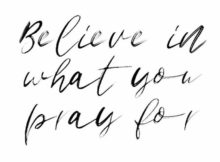 Believe in
what you
pray for